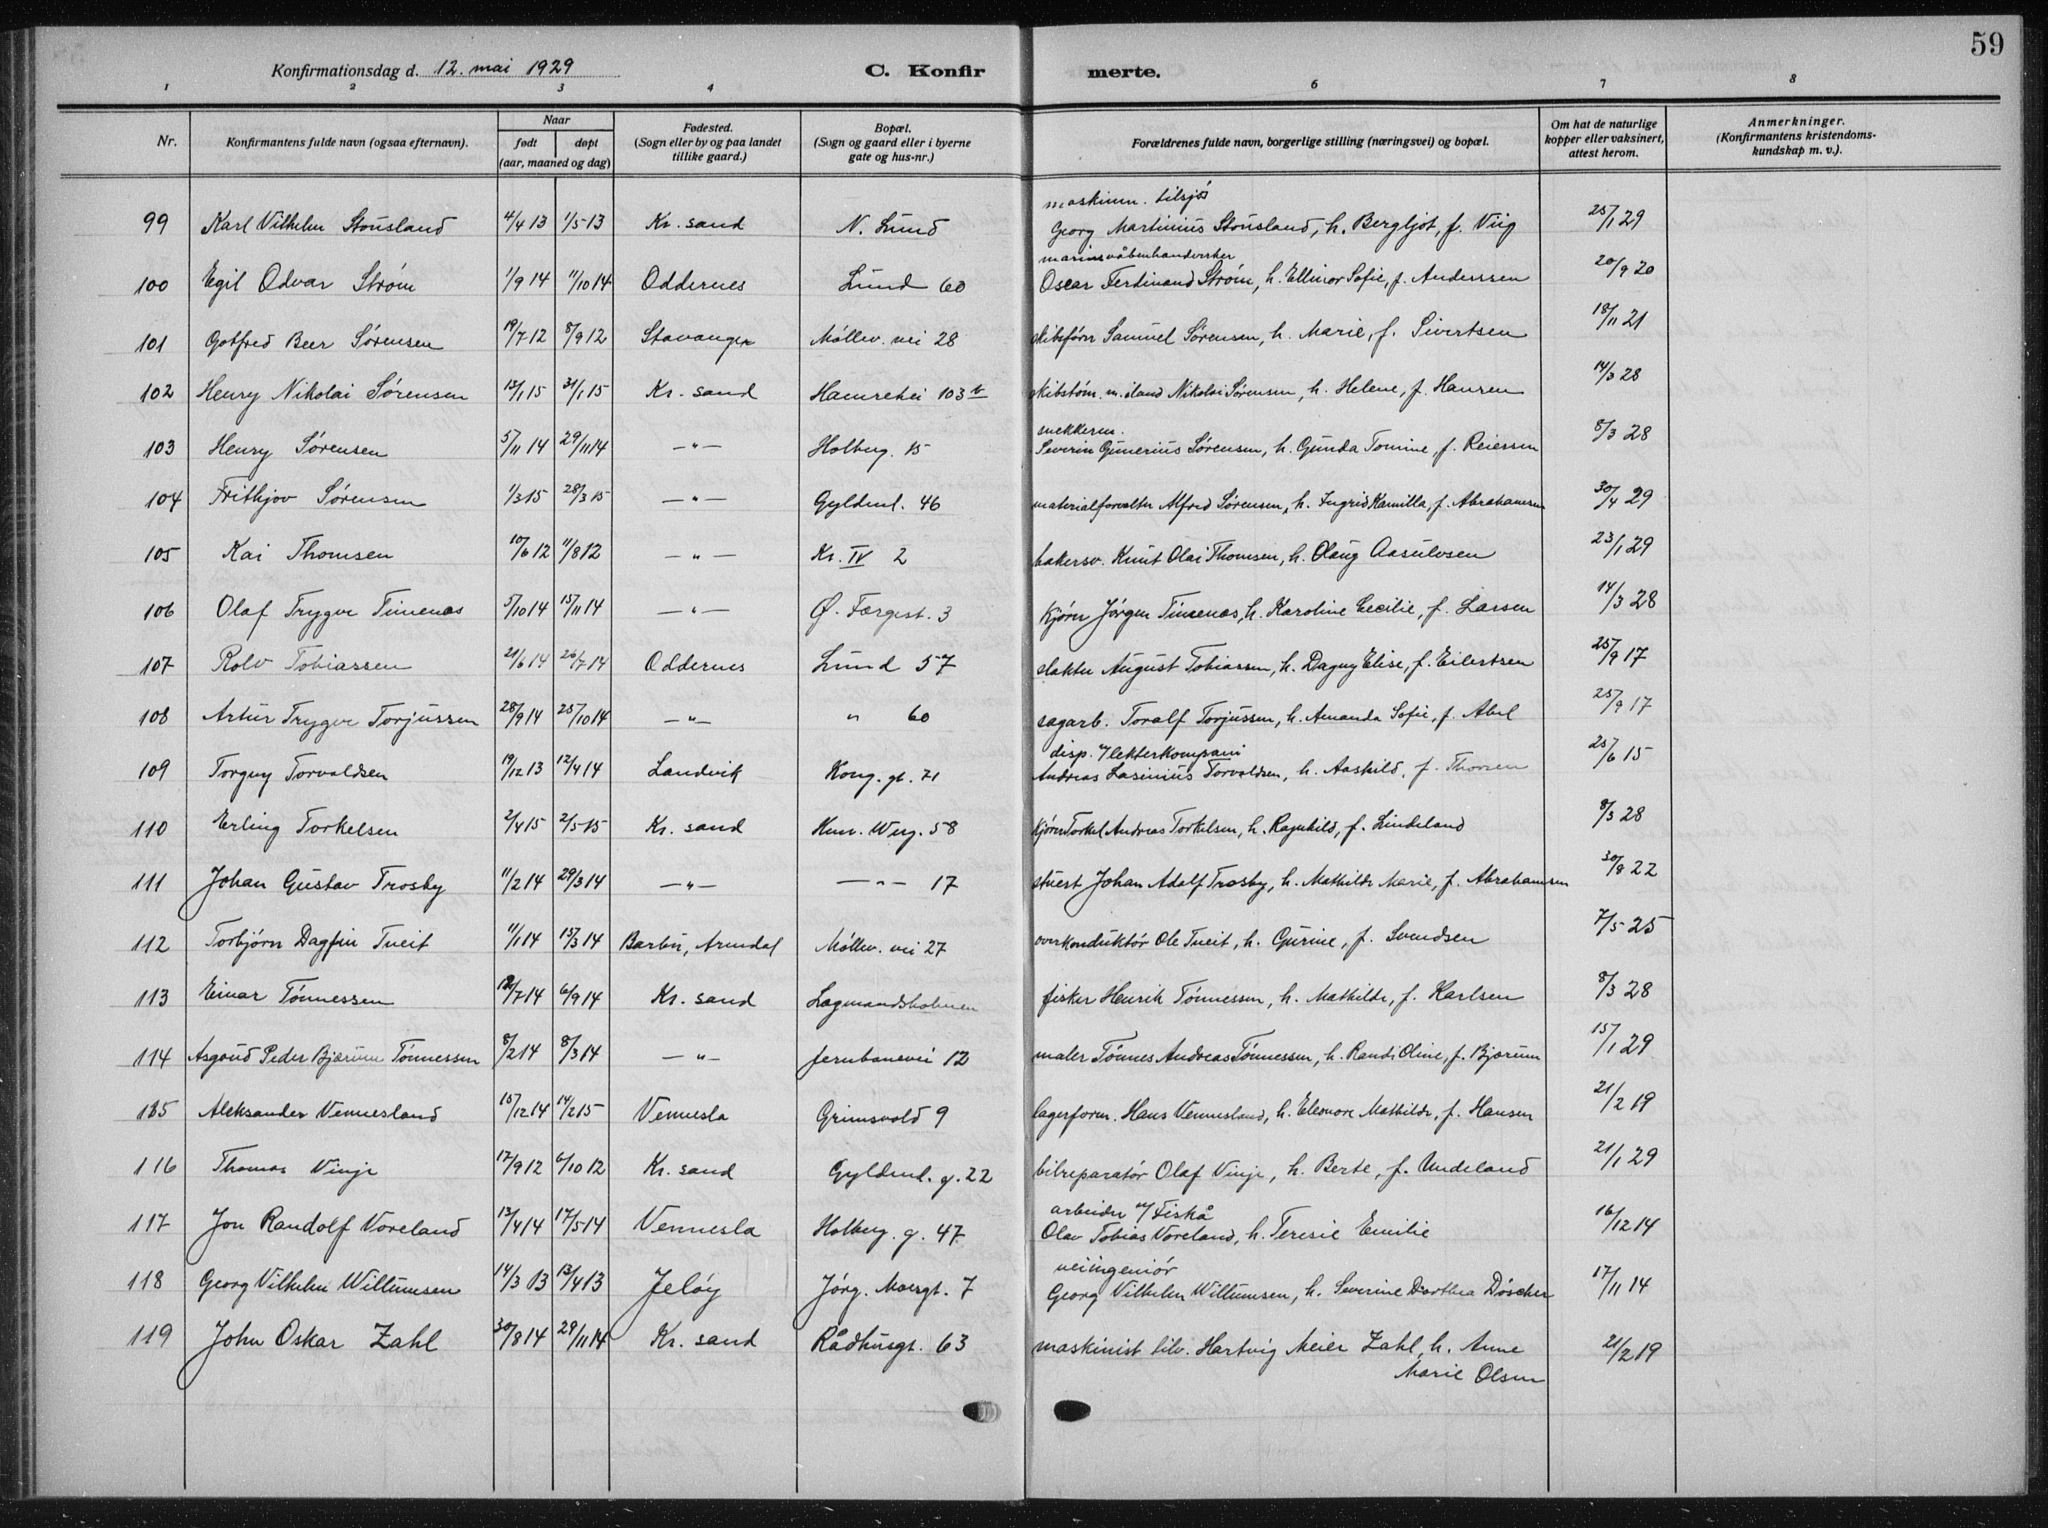 59
Konfirmationsdag d. 12. mai 1929 C. Konfirmerte.
1 2 3 4 6 7 8
Nr. Konfirmantens fulde navn (ogsaa efternavn). Naar født døpt (aar, maaned og dag) Fødested. (Sogn eller by og paa landet tillike gaard.) Bopæl. (Sogn og gaard eller i byerne gate og hus-nr.) Forældrenes fulde navn, borgerlige stilling (næringsvei) og bopæl. Om hat de naturlige kopper eller vaksinert, attest herom. Anmerkninger. (Konfirmantens kristendomskundskap m. v.).
maskinm. tilsjøs
99 Karl Vilhelm Stousland 4/4 13 1/5 13 Kr. sand N. Lund Georg Martinius Stousland, h. Bergljot, f. Viig 25/1 29
marinevåbenhandverker
100 Egil Odvar Strøm 1/9 14 11/10 14 Oddernes Lund 60 Oscar Ferdinand Strøm, h. Ellinor Sofie, f. Anderssen 20/9 20
101 Gotfred Beer Sørensen 19/7 12 8/9 12 Stavanger Møllev. vei 28 skibsførn Samuel Sørensen, h. Marie, f. Sivertsen 18/11 21
102 Henry Nikolai Sørensen 13/1 15 31/1 15 Kr. sand Hamrehei 103 b skibstøm. m. iland Nikolai Sørensen, h. Helene, f. Hansen 14/3 28
snekkerm.
103 Henry Sørensen 5/11 14 29/11 14 —"— Holberg. 15 Severin Gunerius Sørensen, h. Gunda Tomine, f. Reiersen 8/3 28
104 Frithjov Sørensen 1/3 15 28/3 15 —"— Gyldenl. 46 materialforvalter Alfred Sørensen, h. Ingrid Kamilla, f. Abrahamsen 30/4 29
105 Kai Thomsen 10/6 12 11/8 12 —"— Kr. IV 2 bakersv. Knut Olai Thomsen, h. Olaug Aasulvsen 23/1 29
106 Olaf Trygve Timenæs 5/10 14 15/11 14 —"— Ø. Færgest. 3 kjørn Jørgen Timenæs, h. Karoline Cecilie, f. Larsen 14/3 28
107 Rolv Tobiassen 21/6 14 26/7 14 Oddernes Lund 57 slakter August Tobiassen, h. Dagny Elise, f. Eilertsen 25/9 17
108 Artur Trygve Torjussen 28/9 14 25/10 14 —"— " 60 sagarb. Toralf Torjussen, h. Amanda Sofie, f. Abel 25/9 17
disp. v/ lekterkompani
109 Torguy Torvaldsen 19/12 13 12/4 14 Landvik Kong. gt. 71 Andreas Lasinius Torvaldsen, h. Aashild, f. Thorsen 25/6 15
110 Erling Torkelsen 2/4 15 2/5 15 Kr. sand Hen. Werg. 58 kjørn Torkel Andreas Torkelsen, h. Ragnhild, f. Lindeland 8/3 28
111 Johan Gustav Trosby 11/2 14 29/3 14 —"— —"— 17 stuert Johan Adolf Trosby, h. Mathilde Marie, f. Abrahamsen 30/8 22
112 Torbjørn Dagfin Tveit 11/1 14 15/3 14 Barbu, Arendal Møllev. vei 27 overkonduktør Ole Tveit, h. Gurine, f. Svendsen 7/5 25
113 Einar Tønnessen 12/7 14 6/9 14 Kr. sand Lagmandsholmen fisker Henrik Tønnessen, h. Mathilde, f. Karlsen 8/3 28
114 Asgoud Peder Bjærum Tønnessen 8/2 14 8/3 14 —"— Jernbanevei 12 maler Tønnes Andreas Tønnessen, h. Randi Oline, f. Bjærum 15/1 29
115 Aleksander Vennesland 15/12 14 14/2 15 Vennesla Grimsvold 9 lagerform. Hans Vennesland, h. Eleonore Mathilde, f. Hansen 21/2 19
116 Thomas Vinje 17/9 12 6/10 12 Kr. sand Gyldenl. g. 22 bilreparatør Olaf Vinje, h. Berte, f. Undeland 21/1 29
arbeider v/ Fiskå
117 Jon Randolf Voreland 13/4 14 17/5 14 Vennesla Holberg. g. 47 Olav Tobias Voreland, h. Teresie Emilie 16/12 14
veiingeniør
118 Georg Vilhelm Willumsen 14/3 13 13/4 13 Jeløy Jørg. Moesgt. 7 Georg Vilhelm Willumsen, h. Severine Dorthea Døscher 17/11 14
119 John Oskar Zahl 30/8 14 29/11 14 Kr. sand Rådhusgt. 63 maskinist tilv. Hartvig Meier Zahl, h. Anne 21/2 19
Marie Olsen